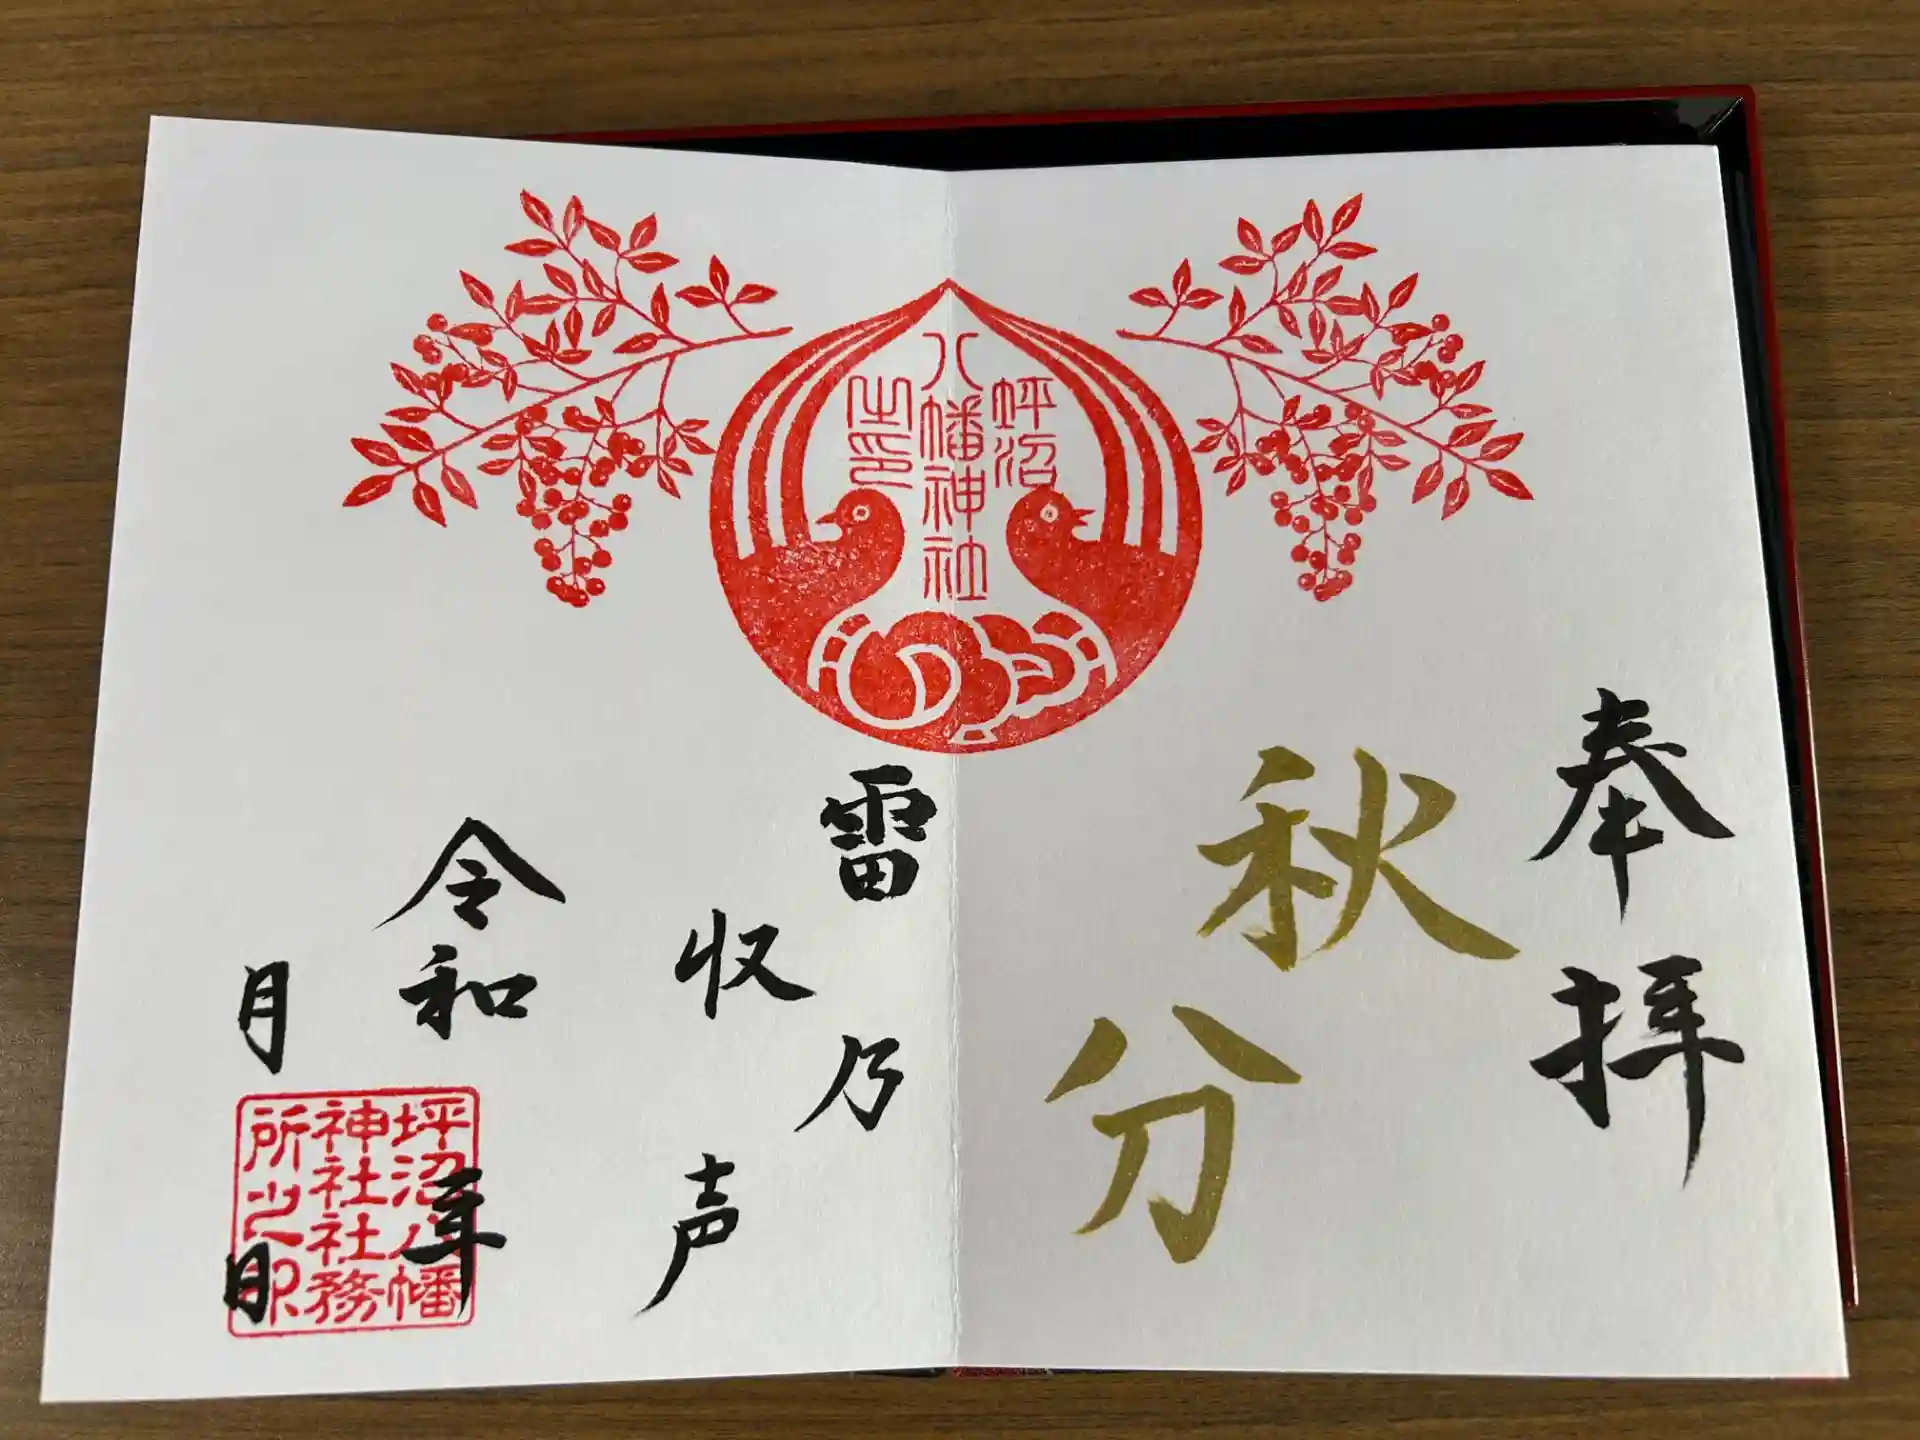 奉拝
秋分
坪沼
八幡神社
之印
雷乃
収声
令和 年
月 日
坪沼八幡
神社社務
所之印